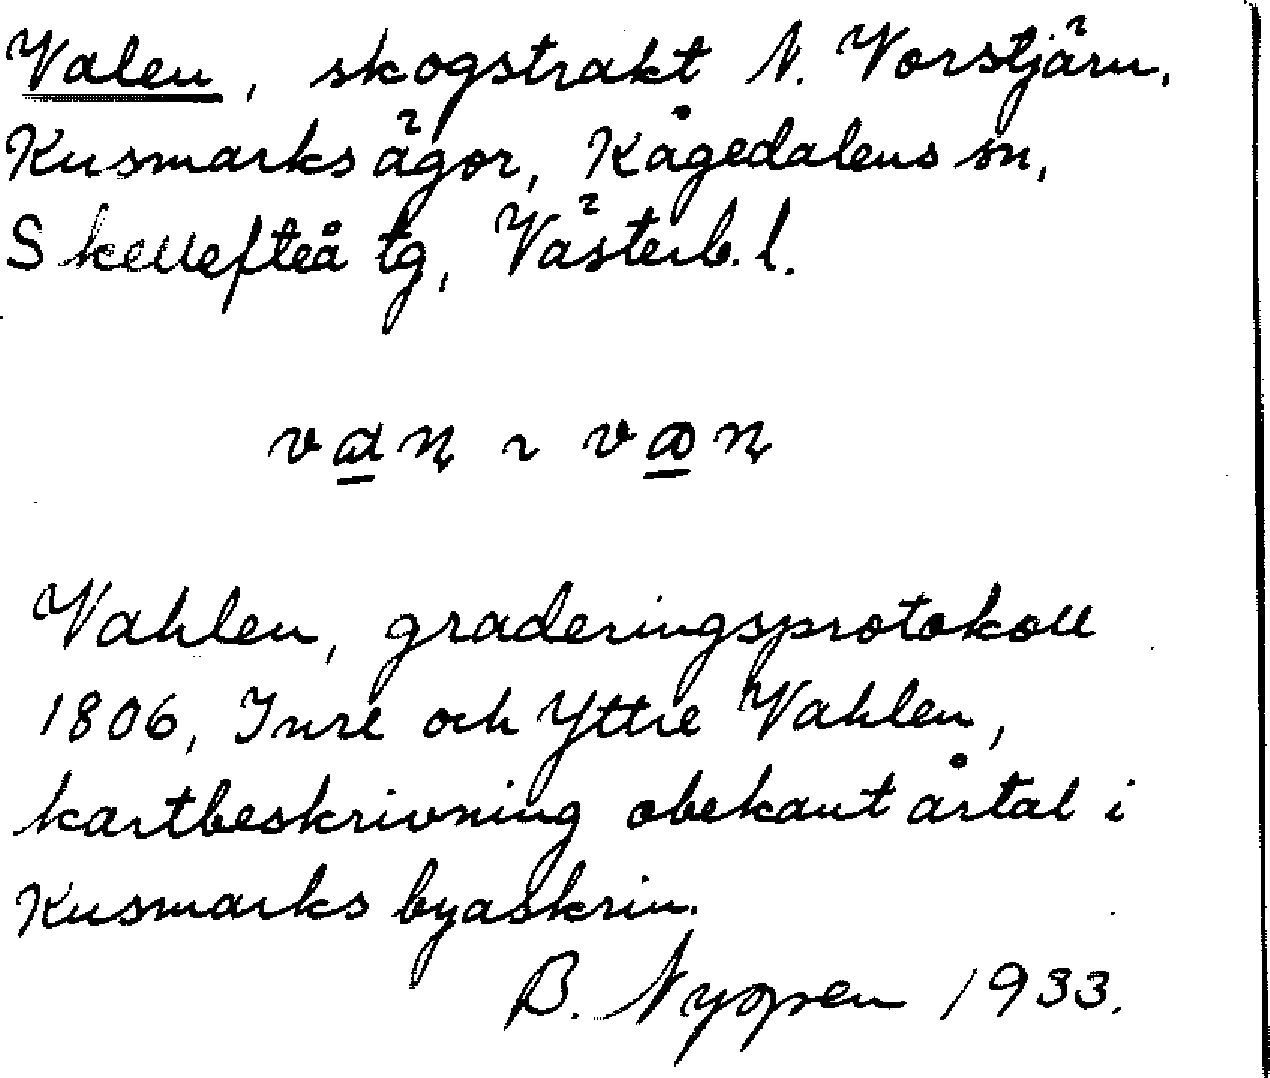 Valen, skogstrakt N. Vorstjärn,
Kusmarks ägor, Kågedalens sn,
Skellefteå tg, Västerb. l.
Vahlen, graderingsprotokoll
1806, Inre och Yttre Vahlen,
kartbeskrivning obekant årtal i
Kusmarks byaskrin.
B. Nygren 1933.